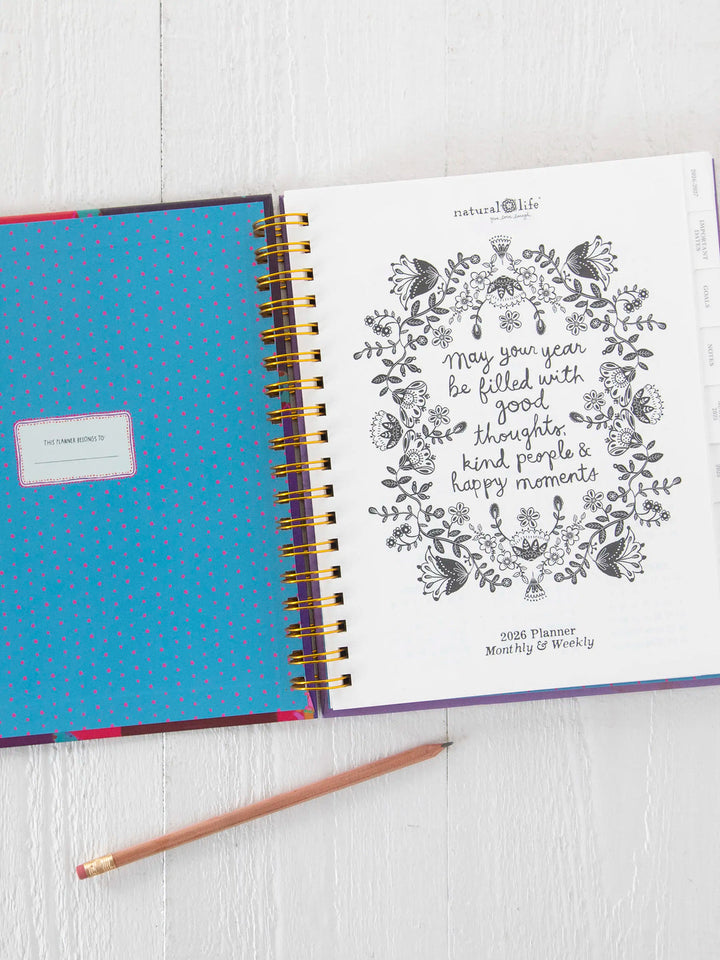 THIS PLANNER BELONGS TO:
natural life®
give. love. laugh.
May your year
be filled with
good
thoughts,
kind people &
happy moments
2026 Planner
Monthly & Weekly
2026-2027
IMPORTANT
DATES
GOALS
NOTES